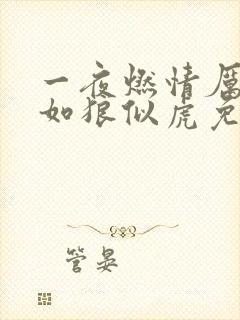 一夜燃情厲
如狼似虎免
管晏